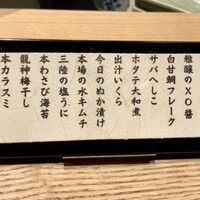 雅醸のXO醤
白甘鯛フレーク
サバへしこ
ホタテ大和煮
出汁いくら
今日のぬか漬け
本場の水キムチ
三陸の塩うに
本わさび海苔
龍神梅干し
本カラスミ